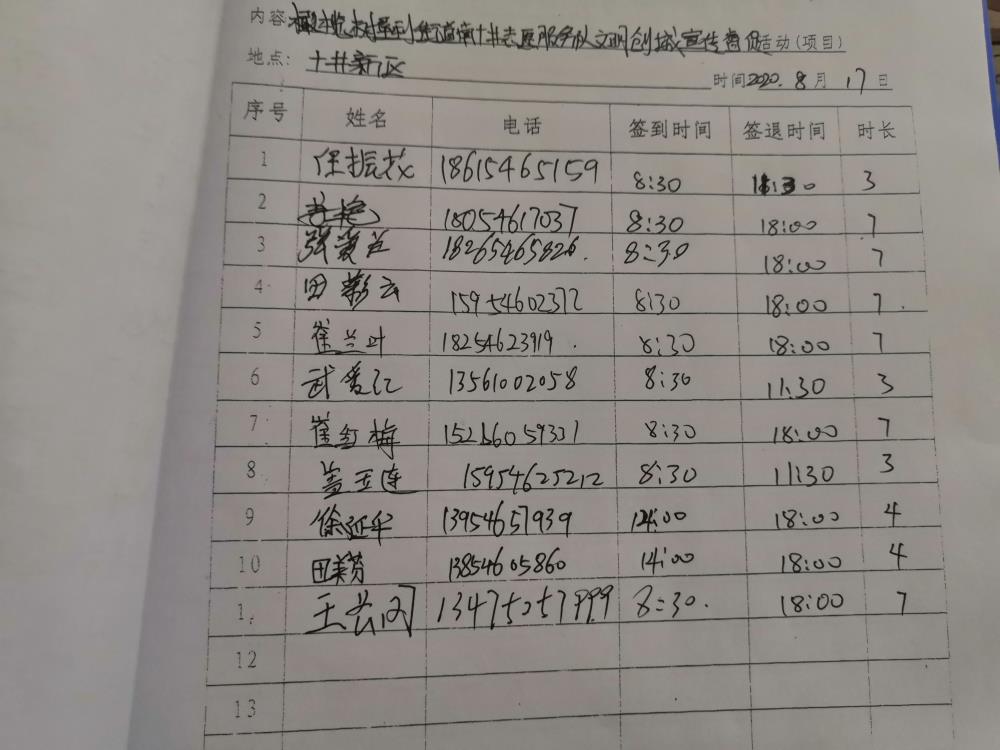 内容: 文明创城宣传督促活动(项目)
地点: 十井新区 时间2020.8月17日
序号 姓名 电话 签到时间 签退时间 时长
1 保振茂 18615465159 8:30 11:30 3
2 18054617037 8:30 18:00 7
3 张爱兰 18265465826. 8:30 18:00 7
4 田彩云 15954602372 8:30 18:00 7.
5 崔兰叶 18254623919. 8:30 18:00 7
6 武爱红 13561002058 8:30 11:30 3
7 崔红梅 8:30 18:00 7
8 盖玉连 15954625212 8:30 11:30 3
9 徐延华 13954657939 14:00 18:00 4
10 田美芬 13854605860 14:00 18:00 4
1. 王 8:30. 18:00 7
12
13